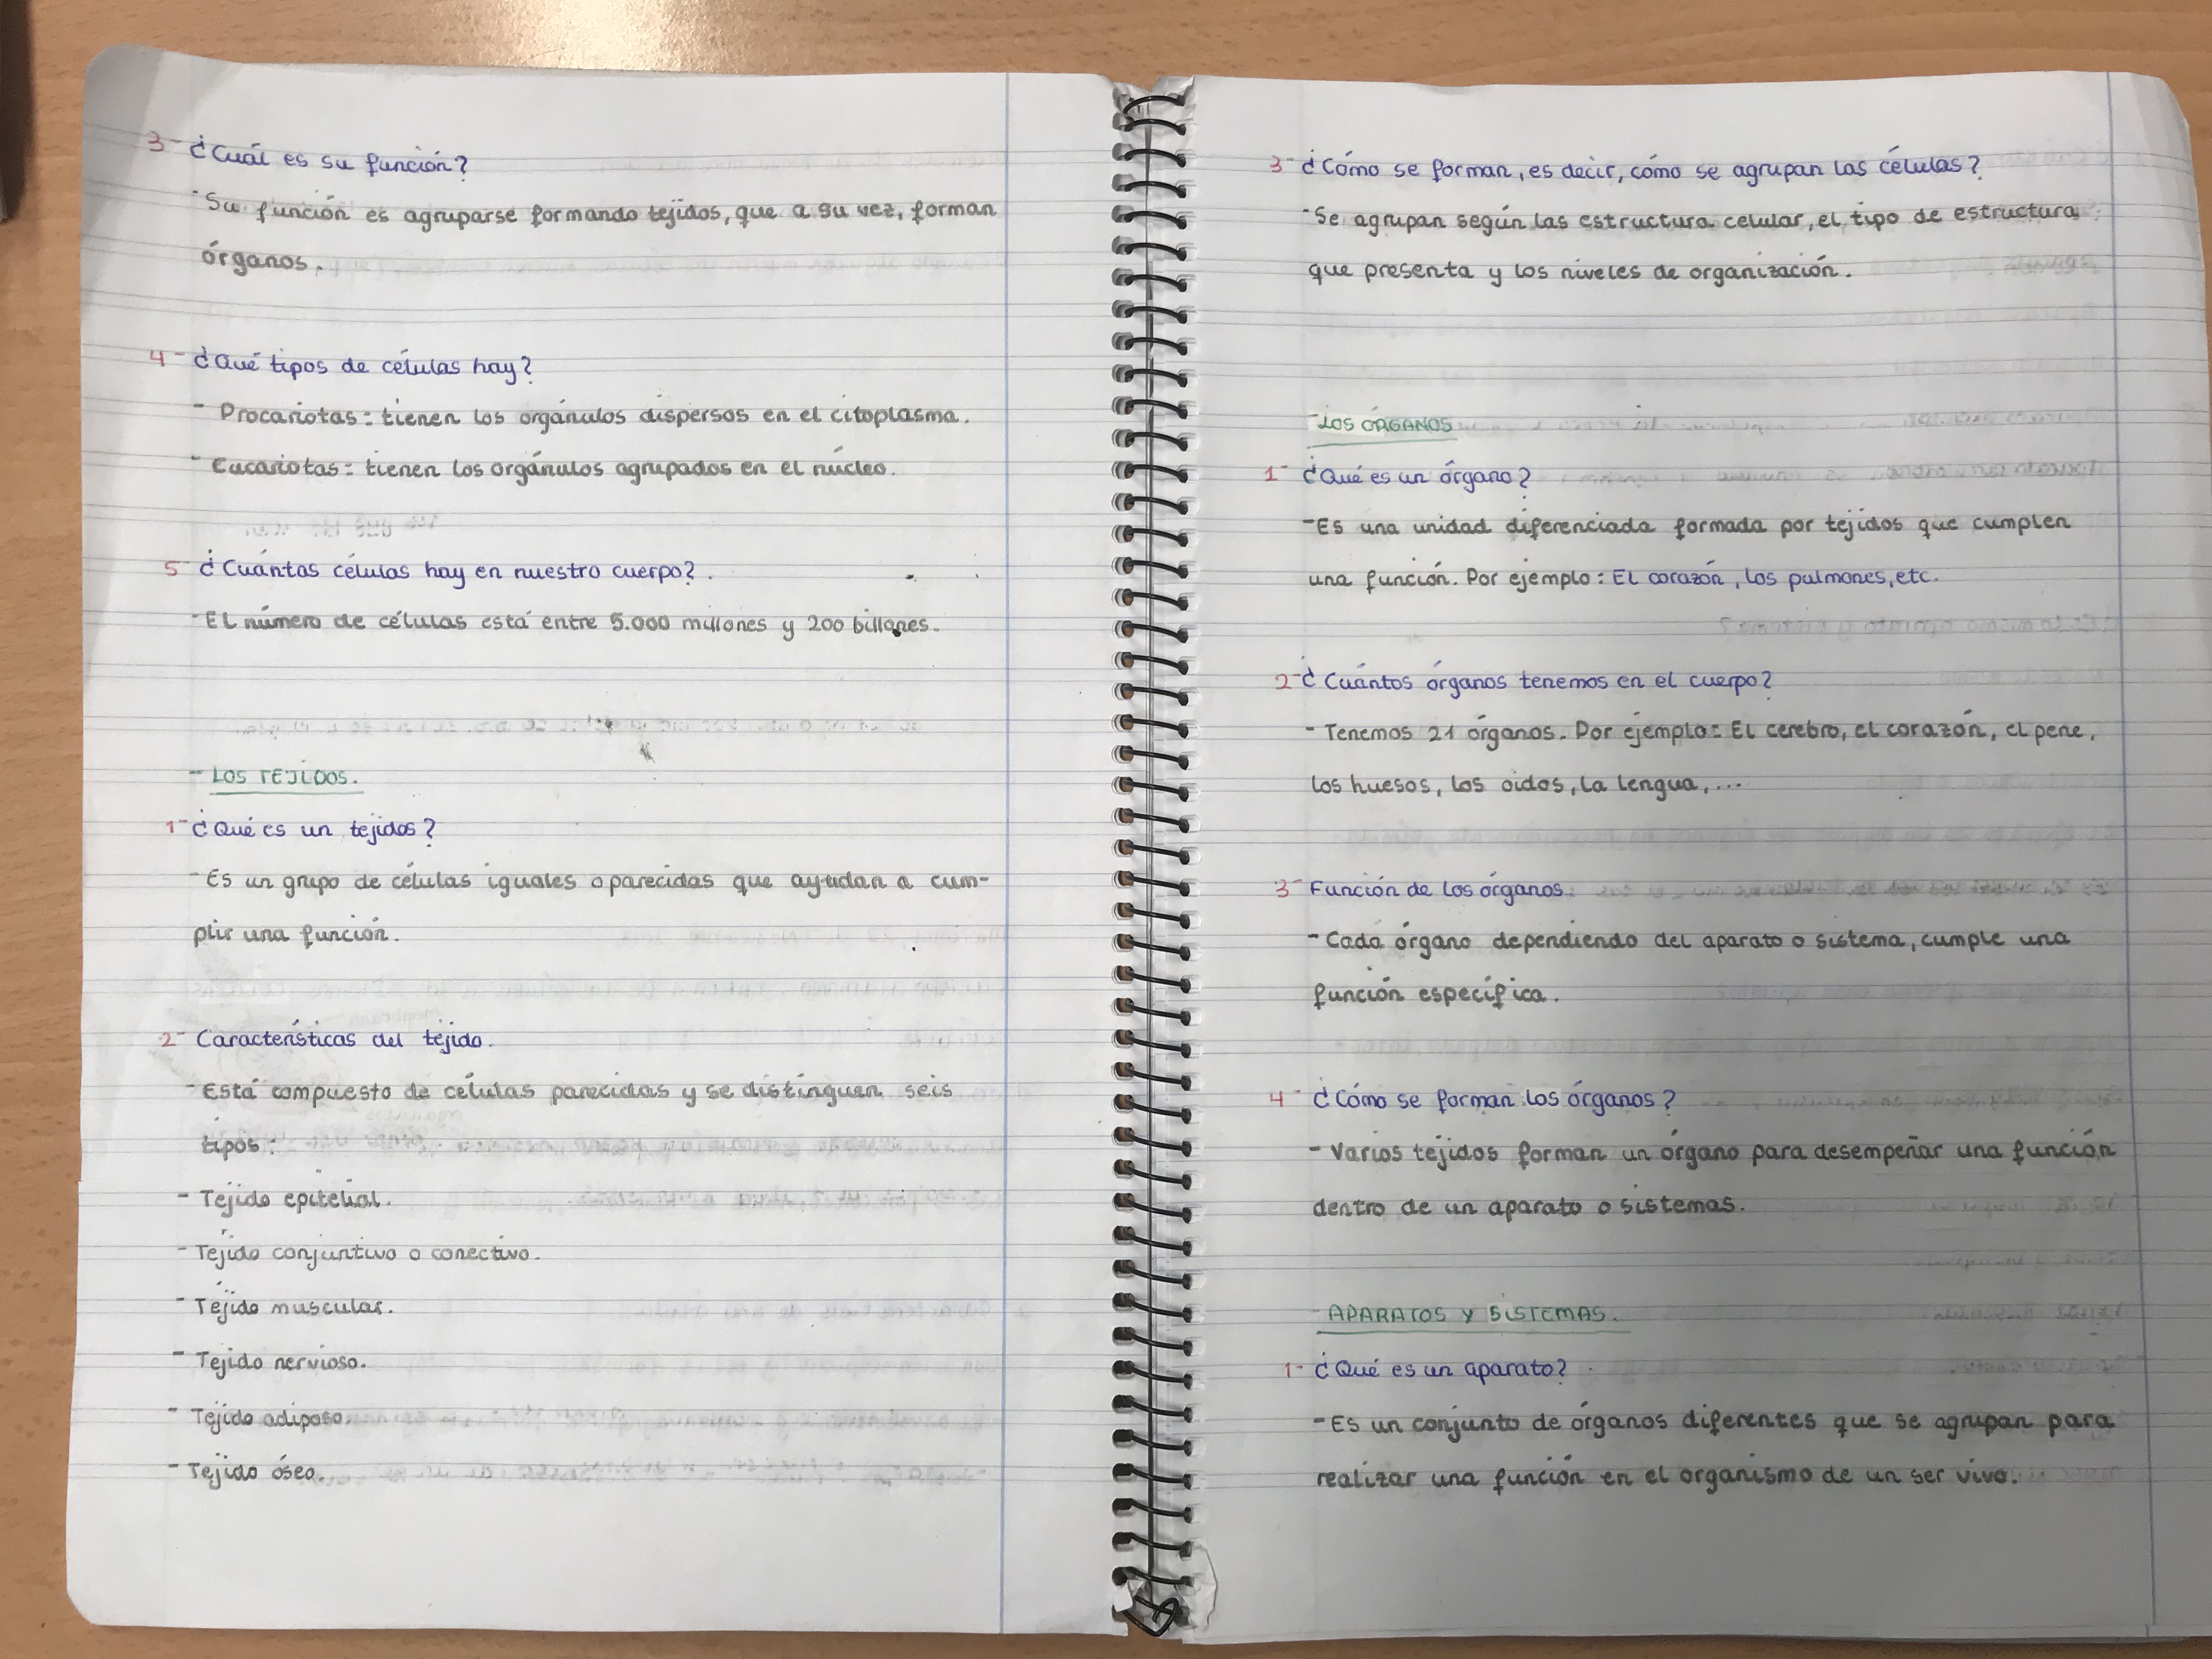 3- ¿Cuál es su función?
- Su función es agruparse formando tejidos, que a su vez, forman
órganos.
4- ¿Qué tipos de células hay?
- Procariotas: tienen los orgánulos dispersos en el citoplasma.
- Eucariotas: tienen los orgánulos agrupados en el núcleo.
5- ¿Cuántas células hay en nuestro cuerpo?.
- El número de células está entre 5.000 millones y 200 billones.
- LOS TEJIDOS.
1- ¿Qué es un tejidos?
- Es un grupo de células iguales o parecidas que ayudan a cum-
plir una función.
2- Características del tejido.
- Está compuesto de células parecidas y se distinguen seis
tipos:
- Tejido epitelial.
- Tejido conjuntivo o conectivo.
- Tejido muscular.
- Tejido nervioso.
- Tejido adiposo.
- Tejido óseo.
3- ¿Cómo se forman, es decir, cómo se agrupan las células?
- Se agrupan según las estructura celular, el tipo de estructura
que presenta y los niveles de organización.
- LOS ÓRGANOS
1- ¿Qué es un órgano?
- Es una unidad diferenciada formada por tejidos que cumplen
una función. Por ejemplo: El corazón, los pulmones, etc.
2- ¿Cuántos órganos tenemos en el cuerpo?
- Tenemos 21 órganos. Por ejemplo: El cerebro, el corazón, el pene,
los huesos, los oídos, la lengua,...
3- Función de los órganos.
- Cada órgano dependiendo del aparato o sistema, cumple una
función específica.
4- ¿Cómo se forman los órganos?
- Varios tejidos forman un órgano para desempeñar una función
dentro de un aparato o sistemas.
- APARATOS Y SISTEMAS.
1- ¿Qué es un aparato?
- Es un conjunto de órganos diferentes que se agrupan para
realizar una función en el organismo de un ser vivo.